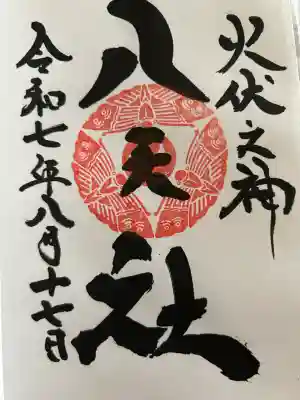 火伏之神
八天社
令和七年八月十七日